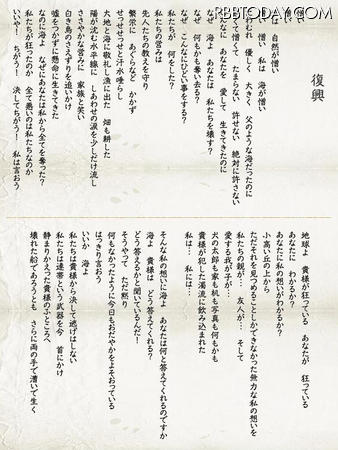 RBBTODAY.COM
復興
自然が憎い
憎い 私は 海が憎い
優しく 大きく 父のような海だったのに
憎くて憎くて たまらない 許せない 絶対に許さない
なぜ 海よ あなたは 私たちを壊す?
なぜ 何もかも奪い去る?
なぜ こんなにひどい事をする?
私たちが 何をした?
私たちの営みは
先人たちの教えを守り
繁栄に あぐらなど かかず
せっせっせっと汗水垂らし
大地と海に敬礼し漁に出た 畑も耕した
陽が沈む水平線に しあわせの涙を少しだけ流し
ささやかな営みに 家族と笑い
白き鳥のさえずりを追いかけ
嘘をつかずに懸命に生きてきた
私たちが狂ったのか 全て悪いのは私たちなのか
いいや! ちがう! 決してちがう! 私は言おう
地球よ 貴様が狂っている あなたが 狂っている
あなたに わかるか?
あなたに私の想いがわかるか?
小高い丘の上から
ただそれを見つめることしかできなかった無力な私の想いを
私たちの親が… 友人が… そして
愛する我が子が…
犬の太郎も家も机も写真も何もかも
貴様が犯した濁流に飲み込まれた
私は… 私には…
そんな私の想いに海よ あなたは何と答えてくれるのですか
海よ 貴様は どう答えてくれる?
どう答えるかと聞いているんだ!
そうやって ただ黙り
何もなかったように今日もおだやかをよそおっている
はっきり言おう
いいか 海よ
私たちは貴様から決して逃げはしない
私たちは連帯という武器を今 首にかけ
静まりかえった貴様のふところへ
壊れた船であろうとも さらに両の手で漕いで生く